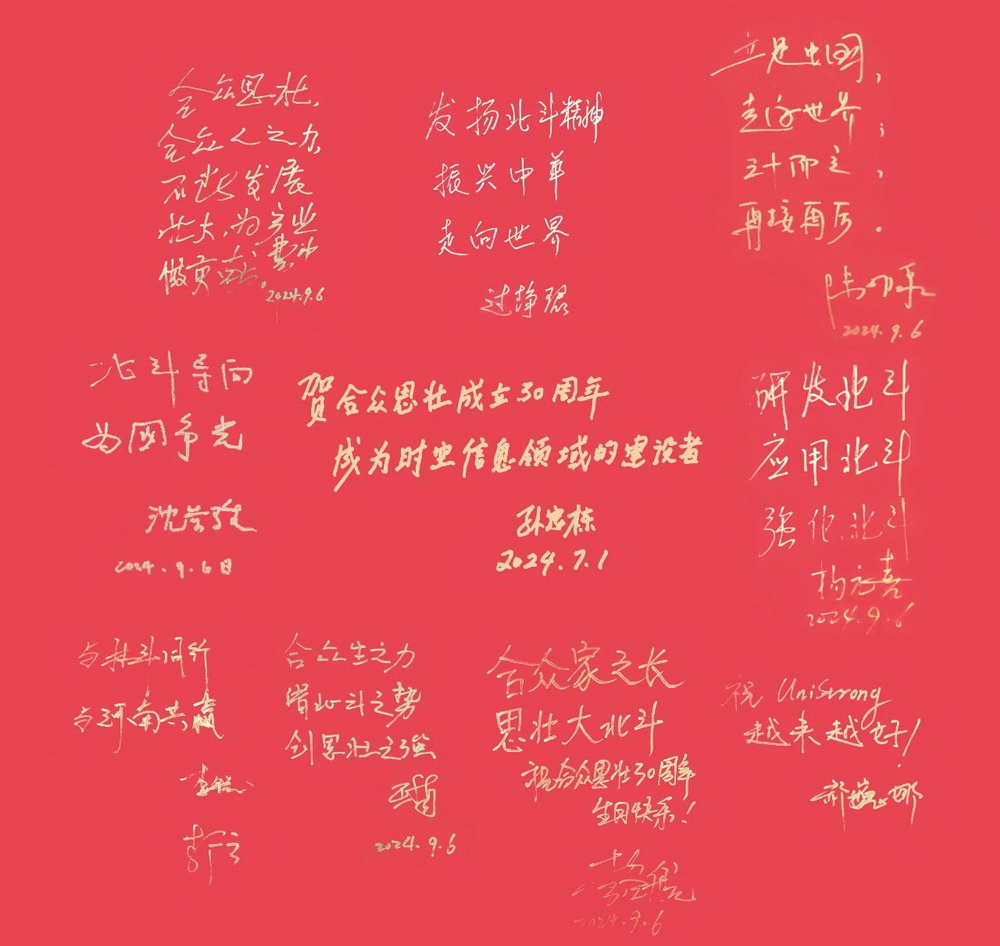 合众思壮,
合众人之力,
不断发展
壮大,为产业
做贡献。
2024.9.6
发扬北斗精神
振兴中华
走向世界
过静珺
立足中国,
走向世界;
三十而立,
再接再厉。
2024.9.6
北斗导向
为国争光
沈荣骏
2024.9.6日
贺合众思壮成立30周年
成为时空信息领域的建设者
孙忠栋
2024.7.1
研发北斗
应用北斗
强化北斗
杨元喜
2024.9.6
与北斗同行
与河南共赢
合众生之力
借北斗之势
创思壮之强
2024.9.6
合众家之长
思壮大北斗
祝合众思壮30周年
生日快乐!
2024.9.6
祝 UniStrong
越来越好!